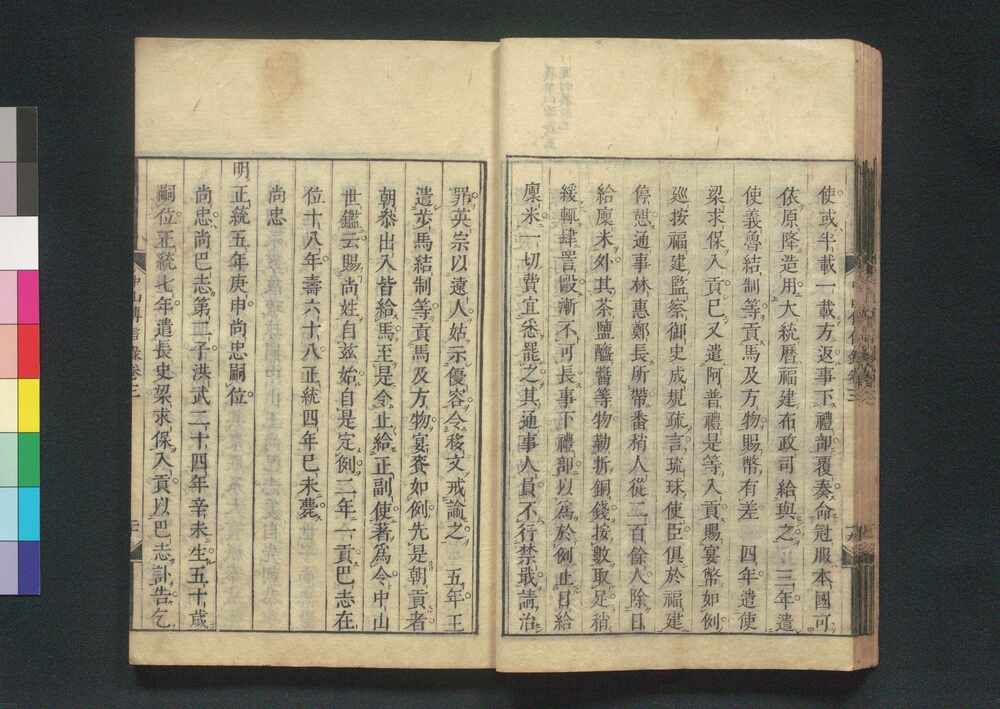 使或半載一載方返事下禮部覆奏命冠服本國可
依原降造用大統曆福建布政司給與之 三年遣
使義魯結制等貢馬及方物賜幣有差 四年遣使
梁求保入貢巳又遣阿普禮是等入貢賜宴幣如例
巡按福建監察御史成規疏言琉球使臣俱於福建
停憩通事林惠鄭長所帶番稍人從二百餘人除日
給廩米外其茶鹽醯醬等物勒折銅錢按數取足稍
緩輒肆詈毆漸不可長事下禮部以為於例止日給
廩米一切費宜悉罷之其通事人員不行禁戢請治
罪英宗以遠人姑示優容令移文戒諭之 五年王
遣步馬結制等貢馬及方物宴賚如例先是朝貢者
朝叅出入皆給馬至是令止給正副使著為令中山
世鑑云賜尚姓自兹始自是定例二年一貢巴志在
位十八年壽六十八正統四年巳未薨
尚忠
明正統五年庚申尚忠嗣位
尚忠尚巴志第二子洪武二十四年辛未生五十歲
嗣位正統七年遣長史梁求保入貢以巴志訃告乞
中山傳信錄卷三